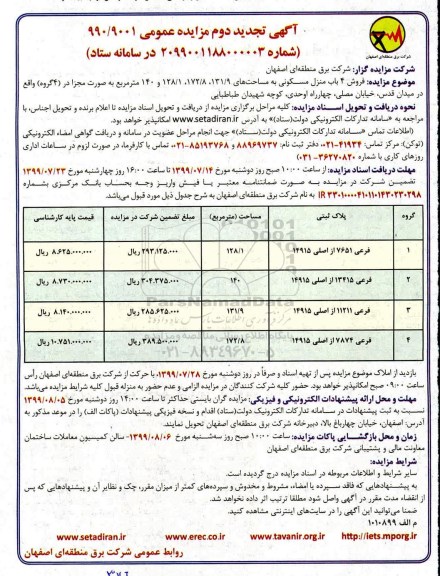 آگهی تجدید دوم مزایده عمومی ۹۹۰/۹۰۰۱
(شماره ۲۰۹۹۰۰۱۱۸۸۰۰۰۰۰۳ در سامانه ستاد)
شرکت برق منطقه‌ای اصفهان
شرکت مزایده گزار: شرکت برق منطقه‌ای اصفهان
موضوع مزایده: فروش ۴ باب منزل مسکونی به مساحت‌های ۱۳۱/۹، ۱۷۲/۸، ۱۲۸/۱ و ۱۴۰ مترمربع به صورت مجزا در (۴گروه) واقع
در میدان قدس، خیابان مصلی، چهارراه اوحدی، کوچه شهیدان طباطبایی
نحوه دریافت و تحویل اسناد مزایده: کلیه مراحل برگزاری مزایده از دریافت و تحویل اسناد مزایده تا اعلام برنده و تحویل اجناس، با
مراجعه به «سامانه تدارکات الکترونیکی دولت(ستاد)» به آدرس www.setadiran.ir امکانپذیر خواهد بود.
(اطلاعات تماس «سامانه تدارکات الکترونیکی دولت(ستاد)» جهت انجام مراحل عضویت در سامانه و دریافت گواهی امضاء الکترونیکی
(توکن): مرکز تماس: ۴۱۹۳۴-۰۲۱، دفتر ثبت نام: ۸۸۹۶۹۷۳۷ و ۸۵۱۹۳۷۶۸-۰۲۱ تماس با کارفرما، در صورت لزوم در ساعات اداری
روزهای کاری با شماره ۳۶۲۷۰۸۲۰-۰۳۱)
مهلت دریافت اسناد مزایده: از ساعت ۱۰:۰۰ صبح روز دوشنبه مورخ ۱۳۹۹/۰۷/۱۴ تا ساعت ۱۶:۰۰ روز چهارشنبه مورخ ۱۳۹۹/۰۷/۲۳
تضمین شرکت در مزایده به صورت ضمانتنامه معتبر یا فیش واریز وجه بحساب بانک مرکزی بشماره
به نام شرکت برق منطقه‌ای اصفهان به شرح جدول ذیل مورد قبول می‌باشد.
گروه پلاک ثبتی مساحت (مترمربع) مبلغ تضمین شرکت در مزایده قیمت پایه کارشناسی
۱ فرعی ۷۶۵۱ از اصلی ۱۴۹۱۵ ۱۲۸/۱ ۲۹۳.۱۲۵.۰۰۰ ریال ۸.۶۲۵.۰۰۰.۰۰۰ ریال
۲ فرعی ۱۳۴۱۵ از اصلی ۱۴۹۱۵ ۱۴۰ ۳۰۴.۳۷۵.۰۰۰ ریال ۸.۷۳۰.۰۰۰.۰۰۰ ریال
۳ فرعی ۱۱۲۱۱ از اصلی ۱۴۹۱۵ ۱۳۱/۹ ۲۸۵.۶۲۵.۰۰۰ ریال ۸.۱۴۰.۰۰۰.۰۰۰ ریال
۴ فرعی ۷۸۷۴ از اصلی ۱۴۹۱۵ ۱۷۲/۸ ۳۸۹.۵۰۰.۰۰۰ ریال ۱۰.۷۵۱.۰۰۰.۰۰۰ ریال
بازدید از املاک موضوع مزایده پس از تهیه اسناد و صرفاً در روز دوشنبه مورخ ۱۳۹۹/۰۷/۲۸، با حرکت از شرکت برق منطقه‌ای اصفهان رأس
ساعت ۰۹:۰۰ صبح امکانپذیر خواهد بود. حضور کلیه شرکت کنندگان در مزایده الزامی و عدم حضور به منزله قبول کلیه شرایط مزایده می‌باشد.
مهلت و محل ارائه پیشنهادات الکترونیکی و فیزیکی: مزایده گران بایستی حداکثر تا ساعت ۱۴:۰۰ روز دوشنبه مورخ ۱۳۹۹/۰۸/۰۵
نسبت به ثبت پیشنهادات در سامانه تدارکات الکترونیک دولت(ستاد) اقدام و نسخه فیزیکی پیشنهادات (پاکات الف) را در موعد مذکور به
آدرس: اصفهان، خیابان چهارباغ بالا، دبیرخانه شرکت برق منطقه‌ای اصفهان تحویل نمایند.
زمان و محل بازگشایی پاکات مزایده: ساعت ۱۰:۰۰ صبح روز سه‌شنبه مورخ ۱۳۹۹/۰۸/۰۶- سالن کمیسیون معاملات ساختمان
معاونت مالی و پشتیبانی شرکت برق منطقه‌ای اصفهان
شرایط مزایده:
سایر شرایط و اطلاعات مربوطه در اسناد مزایده درج گردیده است.
به پیشنهادهایی که فاقد سپرده یا امضاء، مشروط و مخدوش و سپرده‌های کمتر از میزان مقرر، چک و نظایر آن و پیشنهادهایی که پس
از انقضاء مدت مقرر در آگهی واصل شود مطلقا ترتیب اثر داده نخواهد شد.
ضمنا می‌توانید این آگهی را در سایت‌های اینترنتی مشاهده کنید.
م الف ۱۰۱۰۸۹۹
www.setadiran.ir www.erec.co.ir www.tavanir.org.ir http://iets.mporg.ir
روابط عمومی شرکت برق منطقه‌ای اصفهان
ParsNamadData
۰۲۱-۸۸۳۴۹۶۷۰-۵